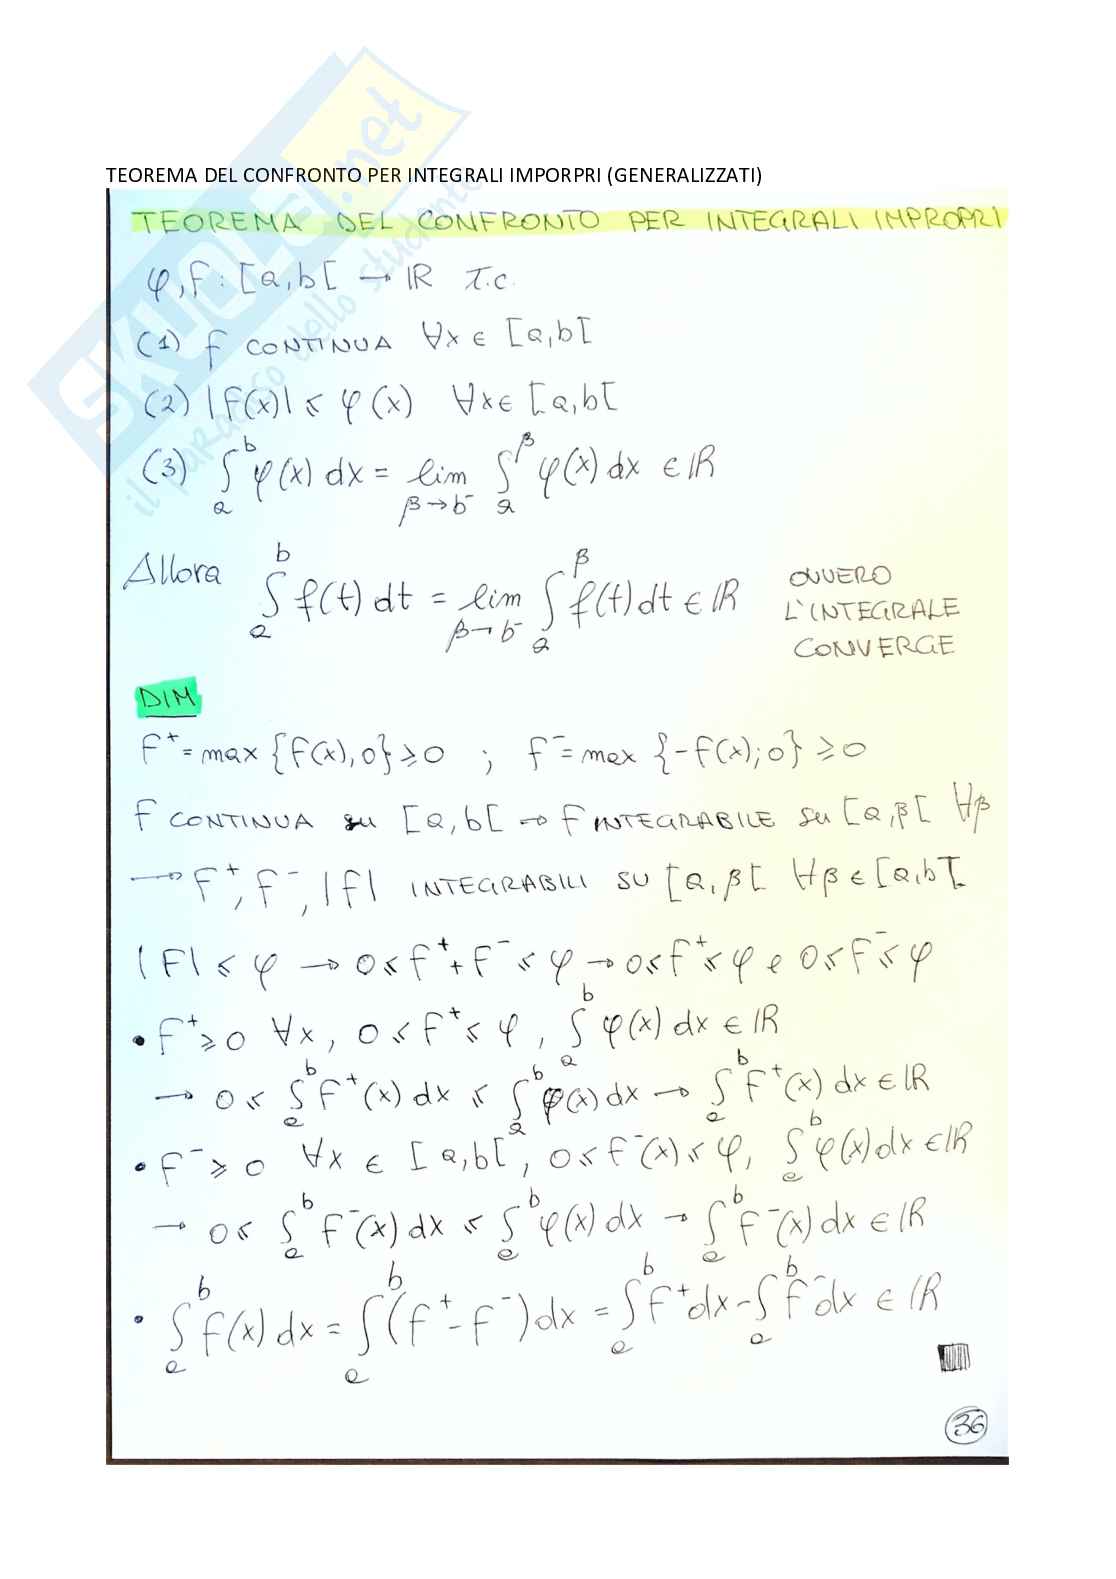 SKUOLA.net
il paradiso dello studente
TEOREMA DEL CONFRONTO PER INTEGRALI IMPORPRI (GENERALIZZATI)
TEOREMA DEL CONFRONTO PER INTEGRALI IMPROPRI
φ, f : [a, b[ → ℝ T.c.
(1) f CONTINUA ∀x ∈ [a, b[
(2) |f(x)| ≤ φ(x) ∀x ∈ [a, b[
(3) ∫_a^b φ(x) dx = lim_{β→b⁻} ∫_a^β φ(x) dx ∈ ℝ
Allora ∫_a^b f(t) dt = lim_{β→b⁻} ∫_a^β f(t) dt ∈ ℝ OVVERO
L'INTEGRALE
CONVERGE
DIM
f⁺ = max {f(x), 0} ≥ 0 ; f⁻ = max {-f(x); 0} ≥ 0
f CONTINUA su [a, b[ → f INTEGRABILE su [a, β[ ∀β
→ f⁺, f⁻, |f| INTEGRABILI SU [a, β[ ∀β ∈ [a, b[.
|f| ≤ φ → 0 ≤ f⁺ + f⁻ ≤ φ → 0 ≤ f⁺ ≤ φ e 0 ≤ f⁻ ≤ φ
• f⁺ ≥ 0 ∀x, 0 ≤ f⁺ ≤ φ, ∫_a^b φ(x) dx ∈ ℝ
→ 0 ≤ ∫_a^b f⁺(x) dx ≤ ∫_a^b φ(x) dx → ∫_a^b f⁺(x) dx ∈ ℝ
• f⁻ ≥ 0 ∀x ∈ [a, b[, 0 ≤ f⁻(x) ≤ φ, ∫_a^b φ(x) dx ∈ ℝ
→ 0 ≤ ∫_a^b f⁻(x) dx ≤ ∫_a^b φ(x) dx → ∫_a^b f⁻(x) dx ∈ ℝ
• ∫_a^b f(x) dx = ∫_a^b (f⁺ - f⁻) dx = ∫_a^b f⁺ dx - ∫_a^b f⁻ dx ∈ ℝ
36